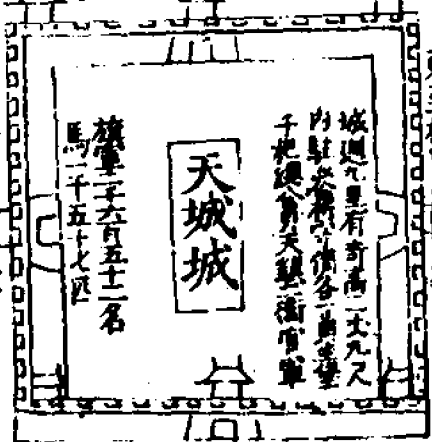 城週九里有奇高二丈九尺
內駐叅將守備各一員坐堡
千把總八員天鎮二衛官軍
天城城
旗軍二千六百五十二名
馬一千五十七匹